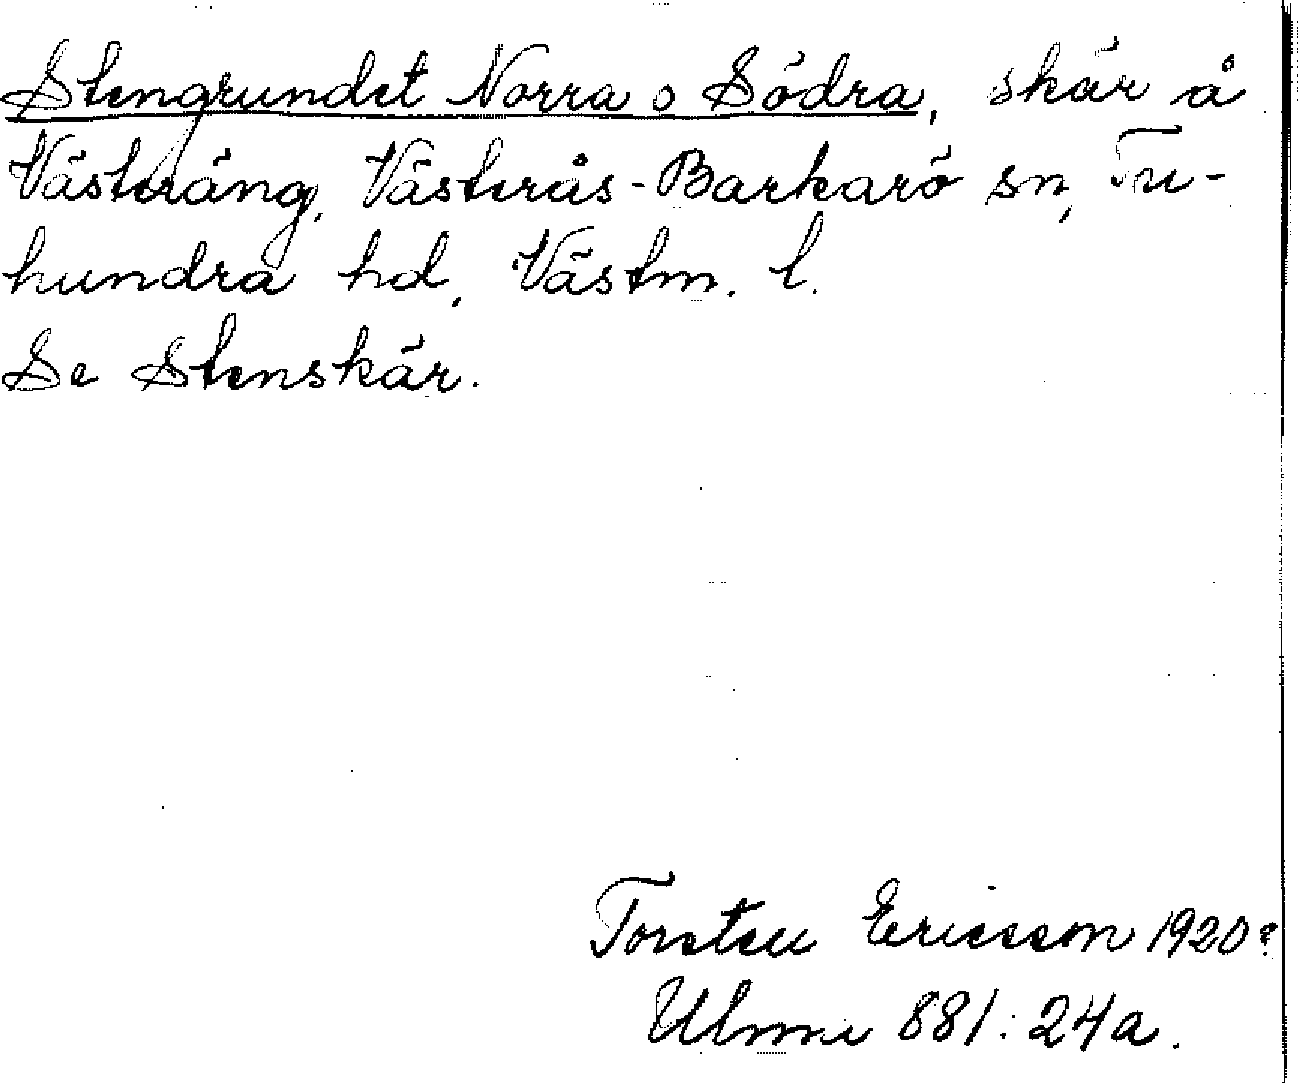 Stengrundet Norra o Södra, skär å
Västeräng, Västerås-Barkarö sn, Tu-
hundra hd, Västm. l.
Se Stenskär.
Torsten Ericsson 1920?
Ulma 881:24a.